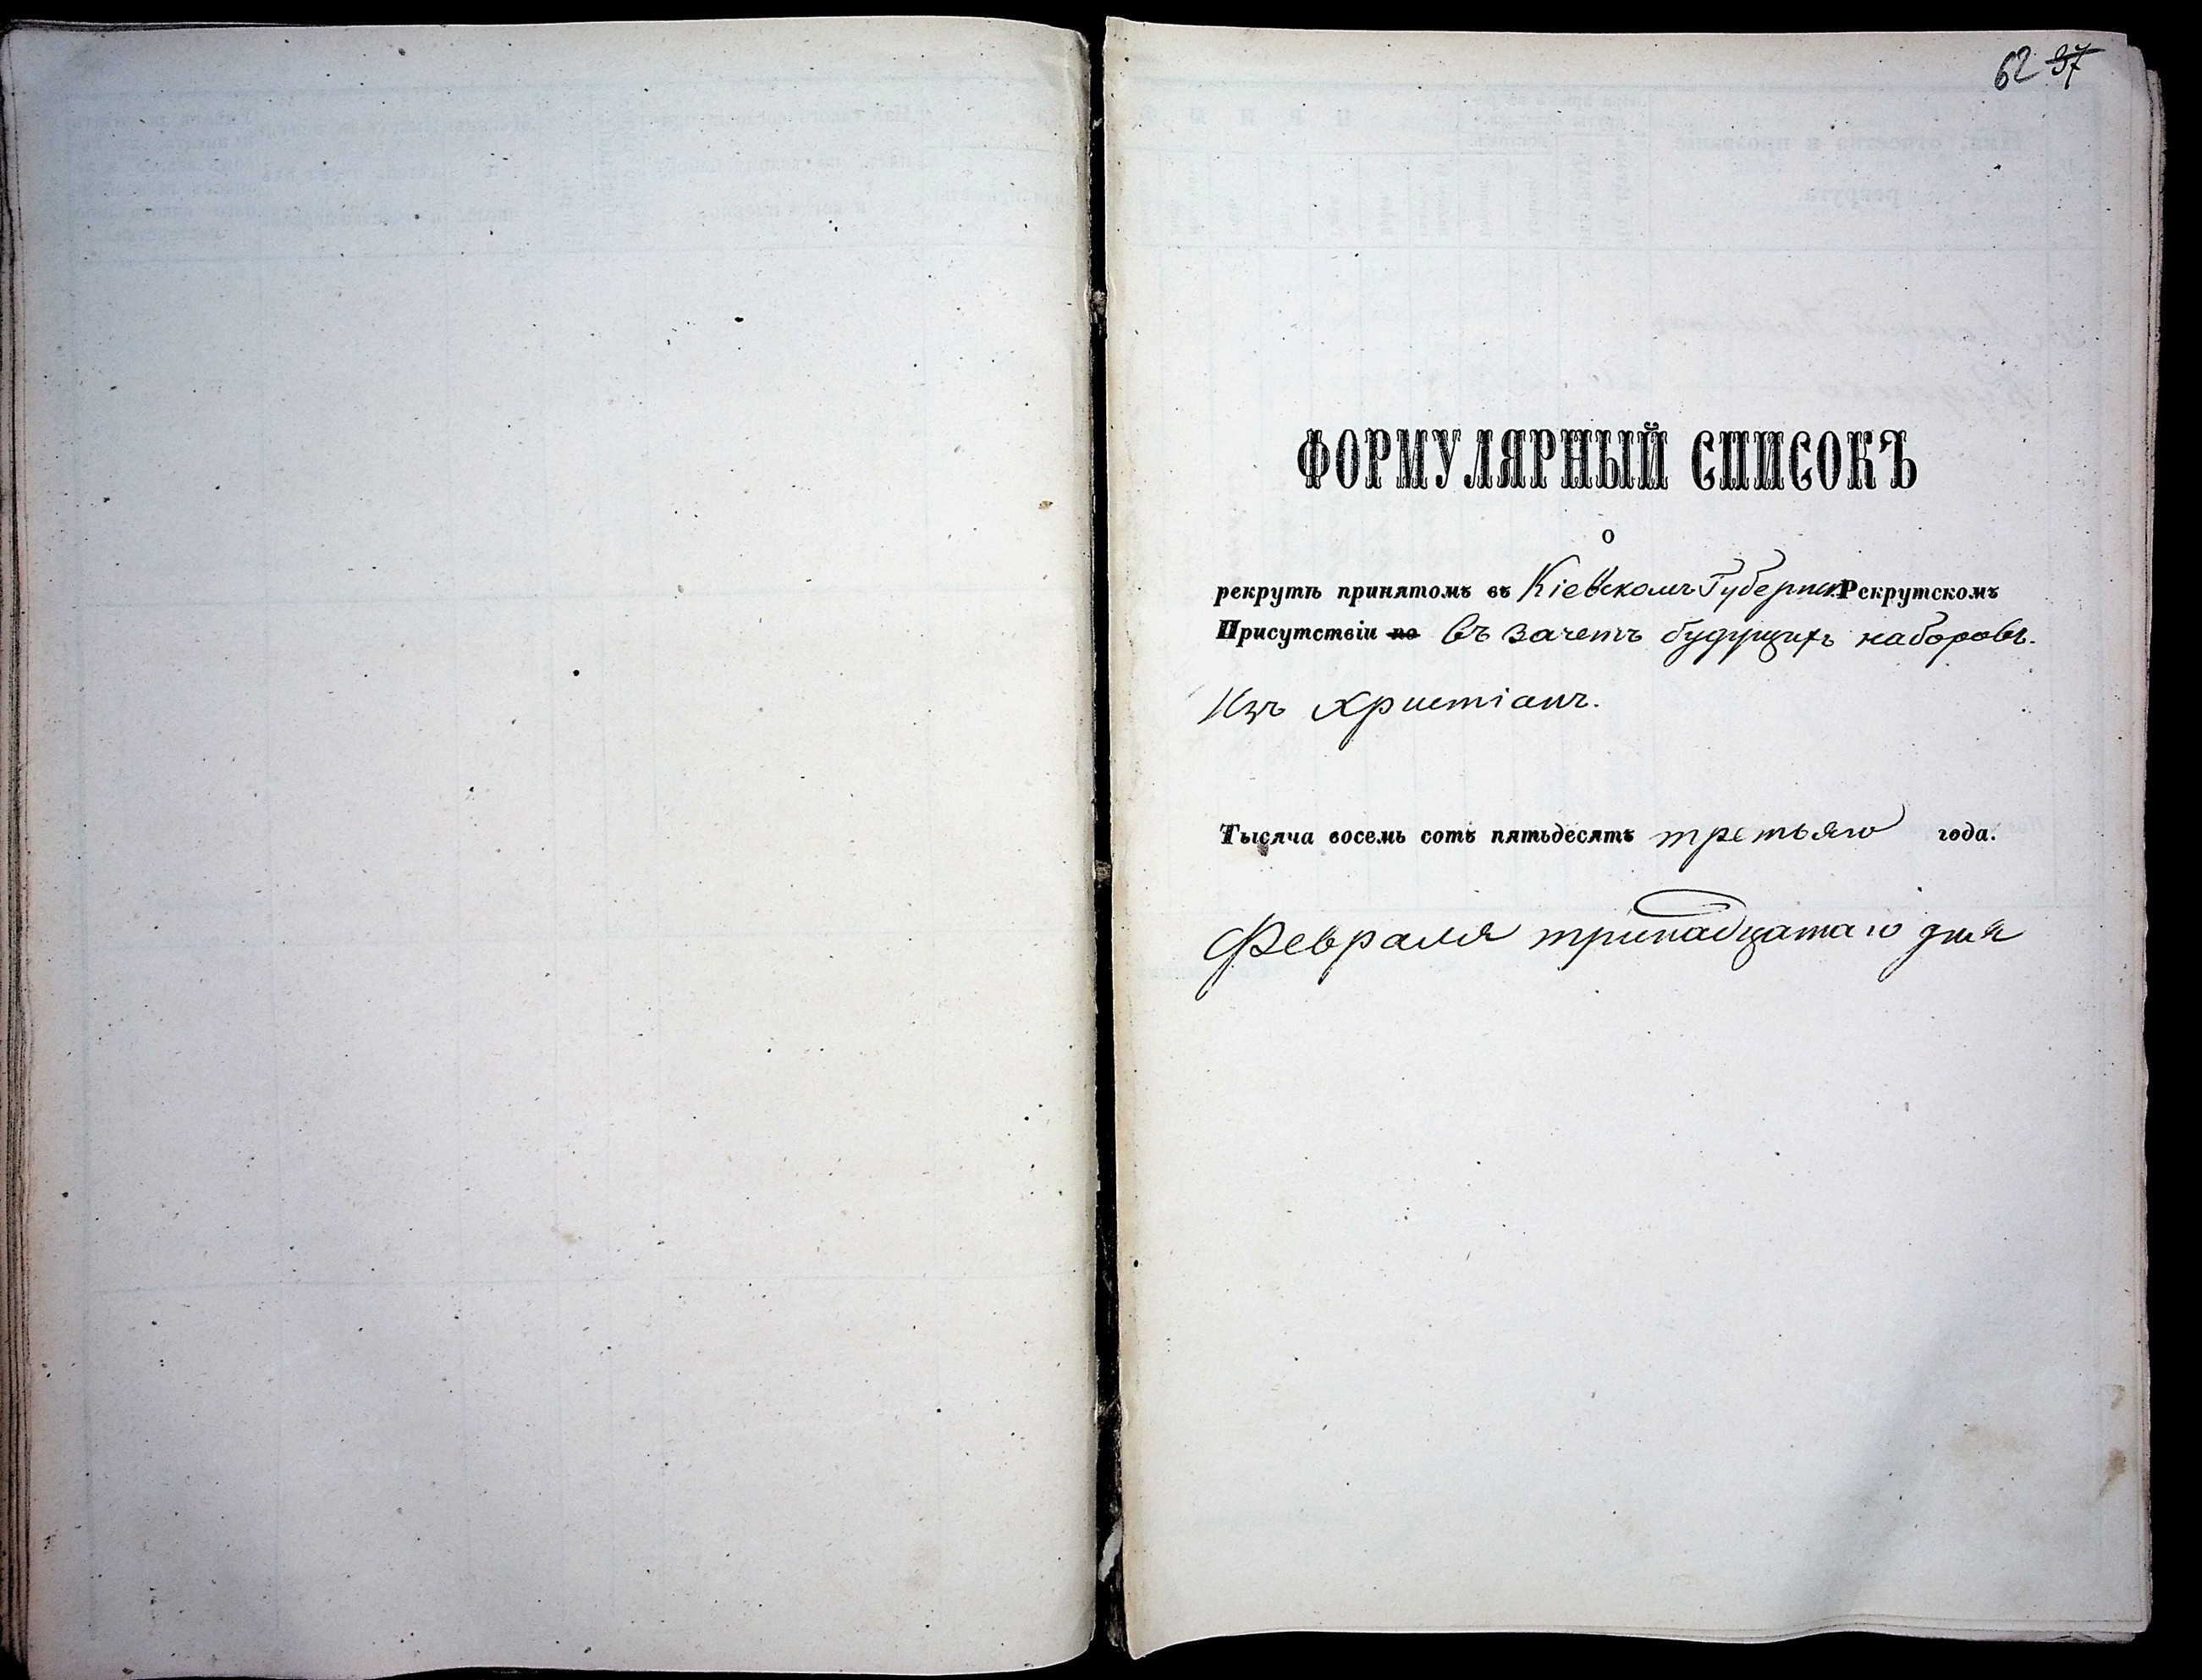 62 37
ФОРМУЛЯРНЫЙ СПИСОКЪ
о
рекрутѣ принятомъ въ Кіевскомъ Губернск. Рекрутскомъ
Присутствіи по въ зачетъ будущихъ наборовъ.
Изъ Христіанъ.
Тысяча восемь сотъ пятьдесятъ третьяго года.
Февраля тринадцатаго дня